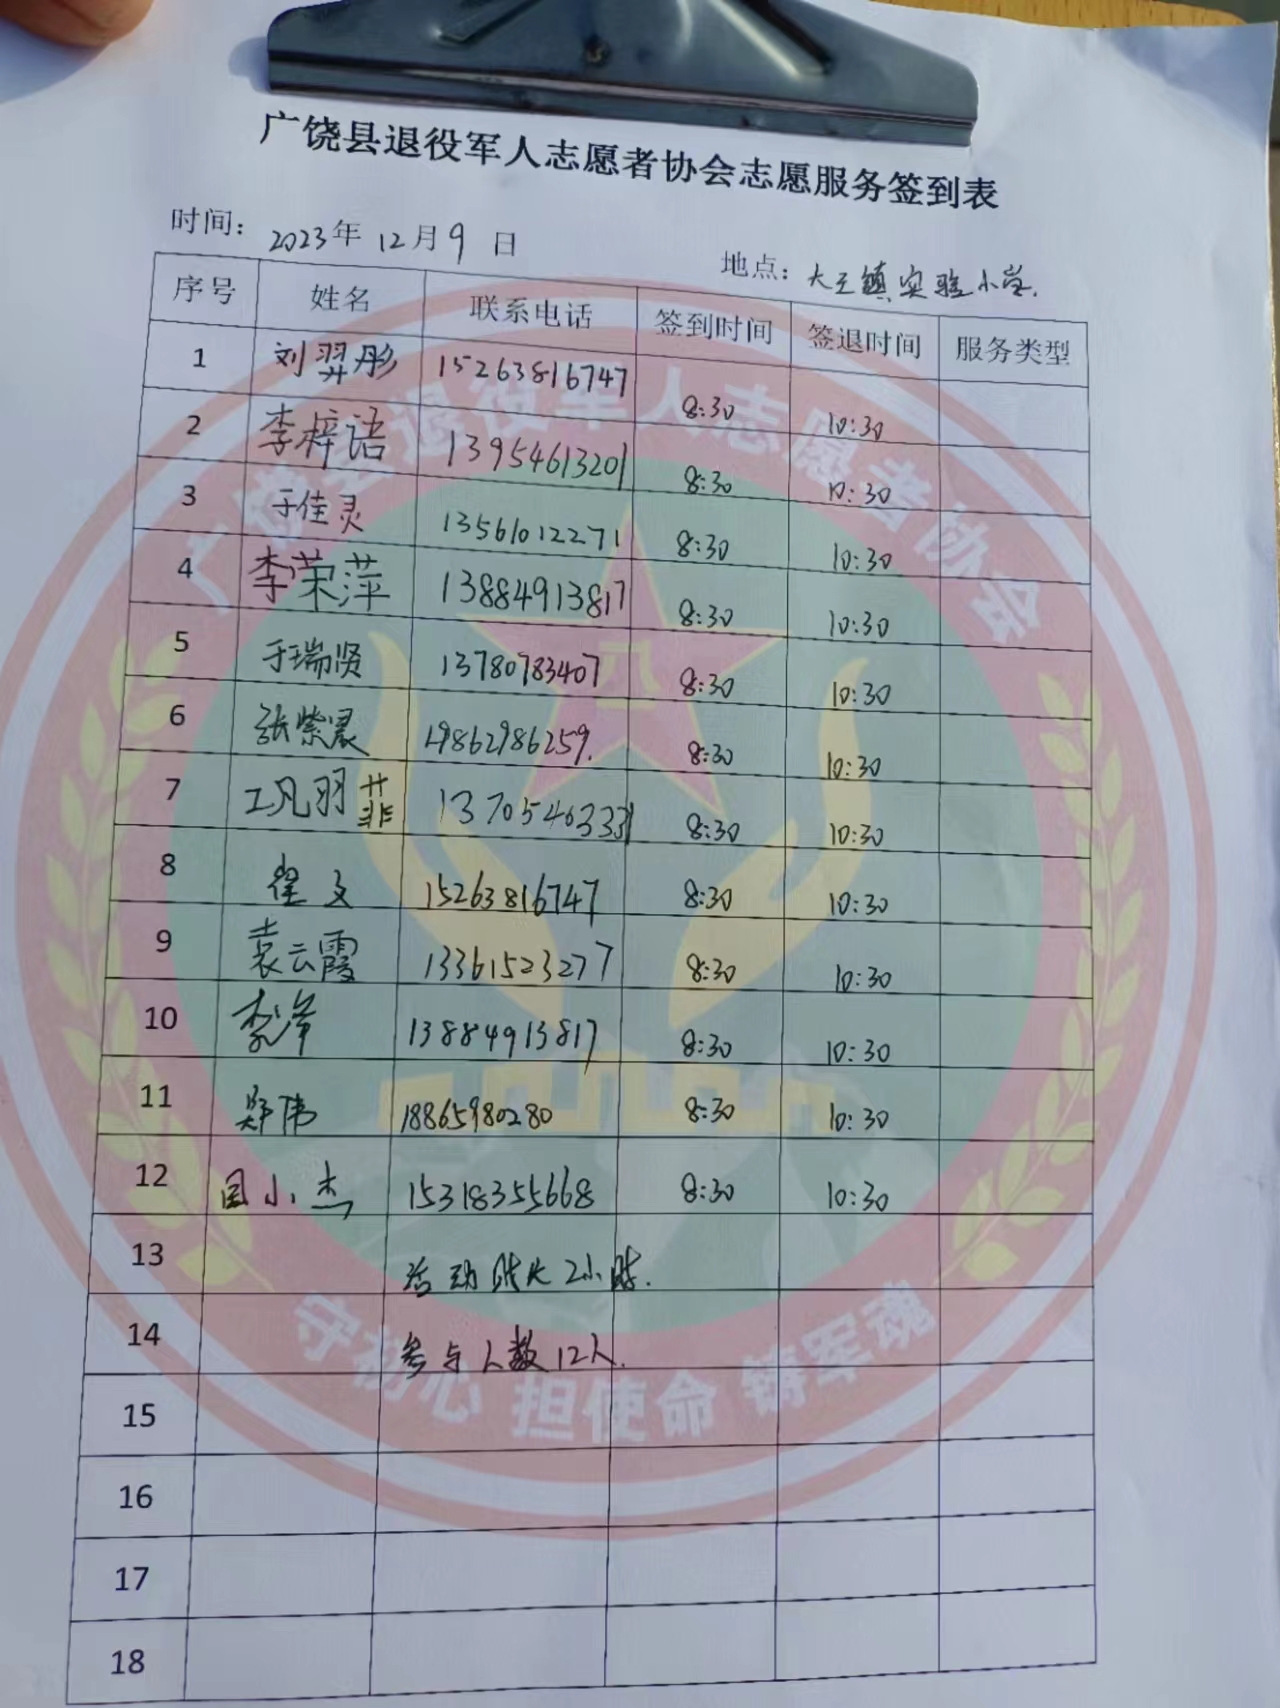 广饶县退役军人志愿者协会志愿服务签到表
时间： 2023年 12月 9 日 地点：大王镇实验小学.
序号 姓名 联系电话 签到时间 签退时间 服务类型
1 刘羿彤 15263816747 8:30 10:30
2 李梓语 13954613201 8:30 10:30
3 于佳灵 13561012271 8:30 10:30
4 李荣萍 13884913817 8:30 10:30
5 于瑞贤 13780783407 8:30 10:30
6 张紫宸 19862986259. 8:30 10:30
7 王凡羽菲 13705463331 8:30 10:30
8 翟文 15263816747 8:30 10:30
9 袁云霞 13361523277 8:30 10:30
10 李萍 13884913817 8:30 10:30
11 郑伟 18865980280 8:30 10:30
12 国小杰 15318355668 8:30 10:30
13 活动时长2小时.
14 参与人数12人.
15
16
17
18
广饶县退役军人志愿者协会
八一
守初心 担使命 铸军魂